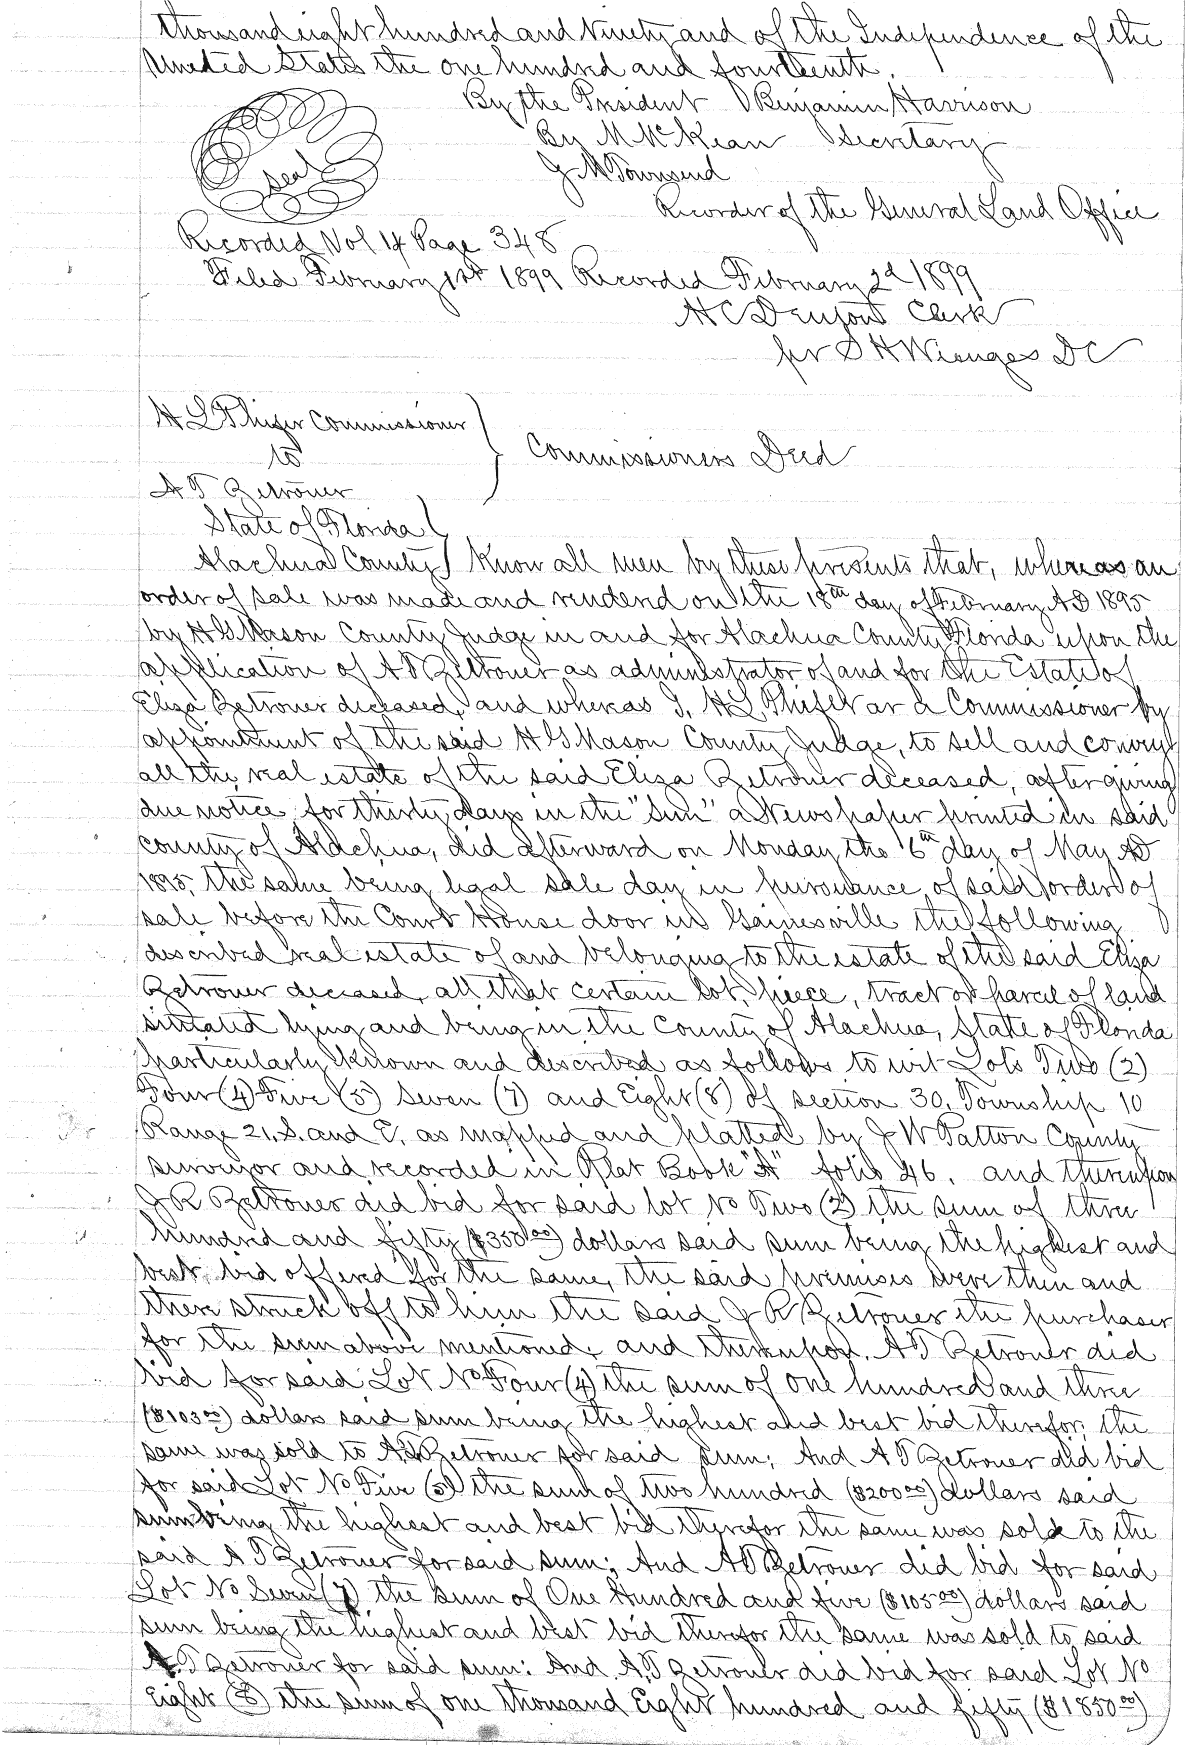 thousand eight hundred and Ninety and of the Independence of the
United States the one hundred and fourteenth.
By the President Benjamin Harrison
By M McKean Secretary
seal
J M Townsend
Recorder of the General Land Office
Recorded Vol 14 Page 348
Filed February 1st 1899 Recorded February 2d 1899
H C Denfont Clerk
pr S H Wienges DC
H L Phifer Commissioner
to
Commissioners Deed
A T Zetrouer
State of Florida
Alachua County Know all men by these presents that, whereas an
order of sale was made and renderd on the 18th day of February AD 1895
by H G Mason County Judge in and for Alachua County Florida upon the
application of A T Zetrouer as administrator of and for the Estate of
Eliza Zetrouer deceased, and whereas I, H L Phifer as a Commissioner by
appointment of the said H G Mason County Judge, to sell and convey
all the real estate of the said Eliza Zetrouer deceased, after giving
due notice for thirty days in the "Sun" a Newspaper printed in said
county of Alachua, did afterward on Monday the 6th day of May AD
1895, the same being legal sale day in pursuance of said order of
sale before the Court House door in Gainesville the following
described real estate of and belonging to the estate of the said Eliza
Zetrouer deceased, all that certain lot, piece, tract or parcel of land
situated lying and being in the County of Alachua, State of Florida
particularly known and described as follows to wit Lots Two (2)
Four (4) Five (5) Seven (7) and Eight (8) of section 30, Township 10
Range 21, S. and E, as mapped and platted by J W Patton County
surveyor and recorded in Plat Book "A" folio 46, and thereupon
J R Zetrouer did bid for said lot No Two (2) the sum of three
hundred and fifty ($350.00) dollars said sum being the highest and
best bid offered for the same, the said premises were then and
there struck off to him the said J R Zetrouer the purchaser
for the sum above mentioned, and thereupon, A T Zetrouer did
bid for said Lot No Four (4) the sum of one hundred and three
($103.00) dollars said sum being the highest and best bid therefor, the
same was sold to A T Zetrouer for said sum; And A T Zetrouer did bid
for said Lot No Five (5) the sum of two hundred ($200.00) dollars said
sum being the highest and best bid therefor the same was sold to the
said A T Zetrouer for said sum; And A T Zetrouer did bid for said
Lot No Seven (7) the sum of One Hundred and five ($105.00) dollars said
sum being the highest and best bid therefor the same was sold to said
A T Zetrouer for said sum: And A T Zetrouer did bid for said Lot No
Eight (8) the sum of one thousand Eight hundred and fifty ($1850.00)